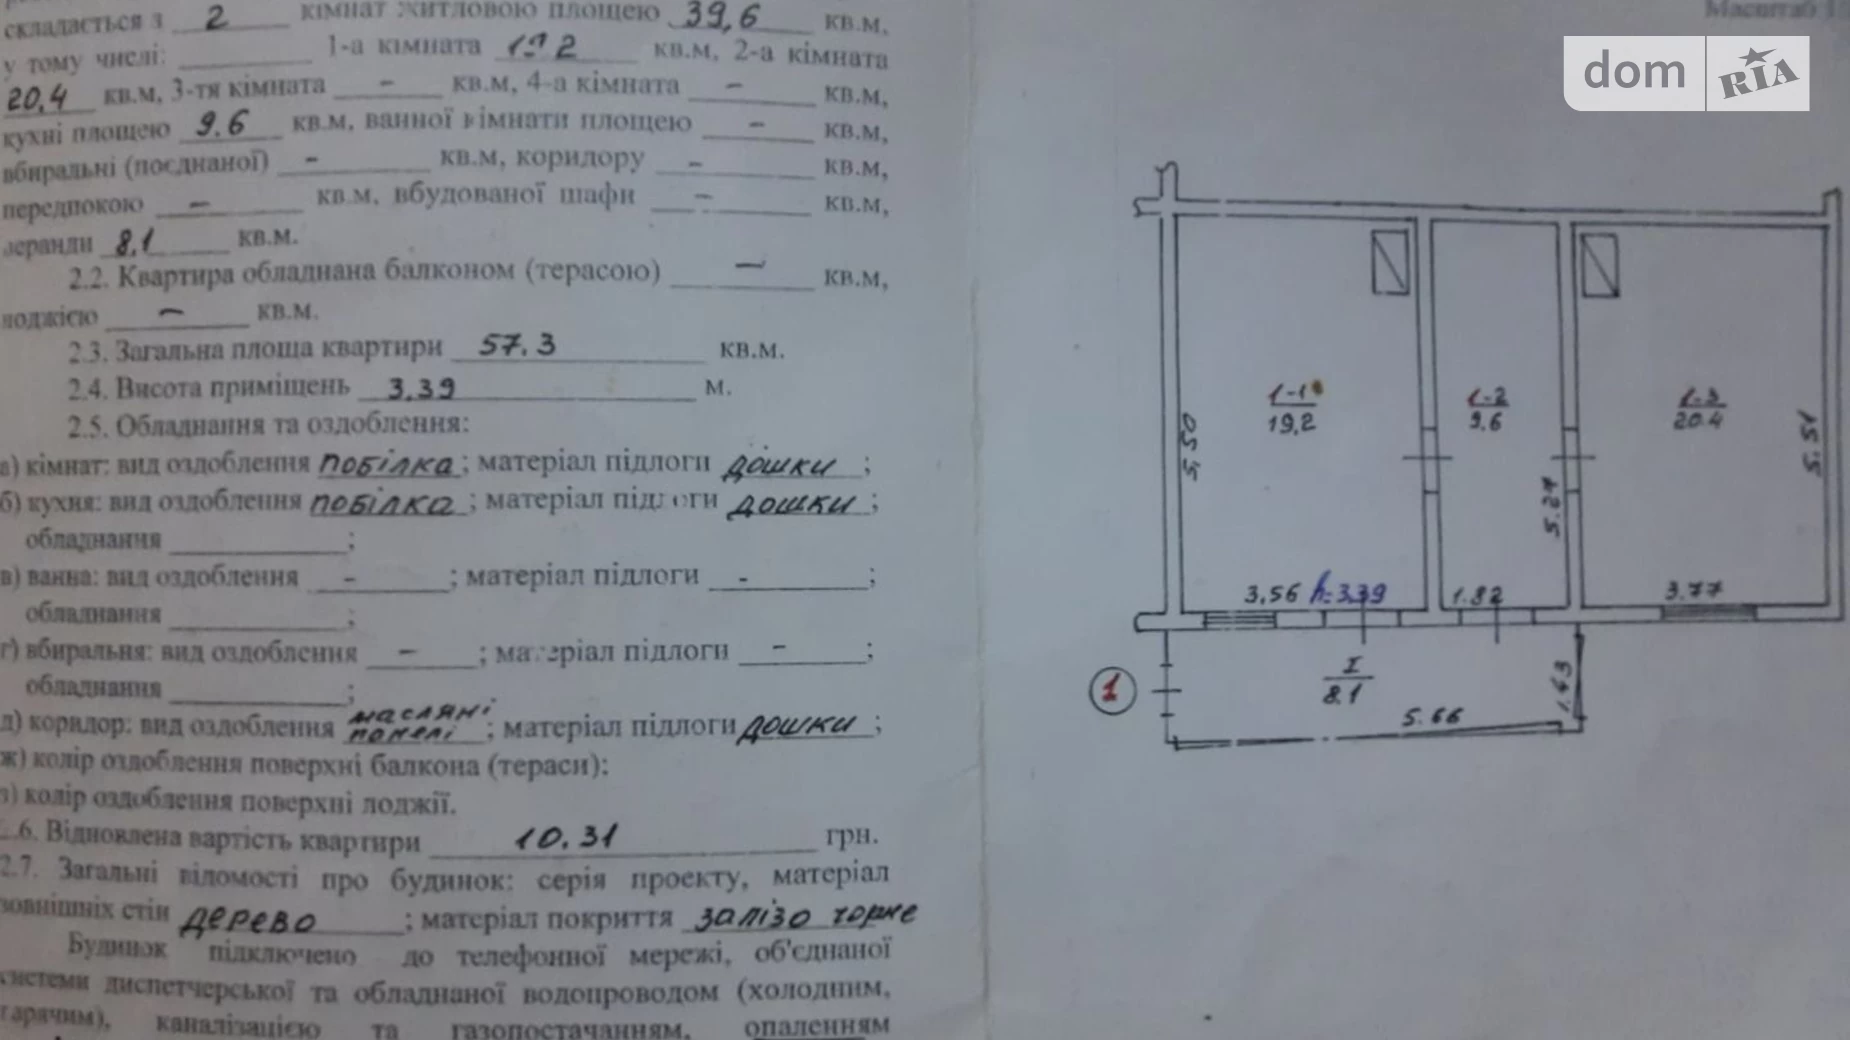 складається з 2 кімнат житловою площею 39,6 кв.м,
у тому числі: 1-а кімната 19 2 кв.м, 2-а кімната
20,4 кв.м, 3-тя кімната - кв.м, 4-а кімната - кв.м,
кухні площею 9.6 кв.м, ванної кімнати площею - кв.м,
вбиральні (поєднаної) - кв.м, коридору - кв.м,
передпокою - кв.м, вбудованої шафи - кв.м,
веранди 8,1 кв.м.
2.2. Квартира обладнана балконом (терасою) - кв.м,
лоджією - кв.м.
2.3. Загальна площа квартири 57.3 кв.м.
2.4. Висота приміщень 3,39 м.
2.5. Обладнання та оздоблення:
а) кімнат: вид оздоблення побілка; матеріал підлоги дошки;
б) кухня: вид оздоблення побілка; матеріал підлоги дошки;
обладнання ;
в) ванна: вид оздоблення - ; матеріал підлоги - ;
обладнання ;
г) вбиральня: вид оздоблення - ; матеріал підлоги - ;
обладнання ;
д) коридор: вид оздоблення масляні панелі; матеріал підлоги дошки;
ж) колір оздоблення поверхні балкона (тераси):
з) колір оздоблення поверхні лоджії.
2.6. Відновлена вартість квартири 10.31 грн.
2.7. Загальні відомості про будинок: серія проекту, матеріал
зовнішніх стін дерево ; матеріал покриття залізо чорне
Будинок підключено до телефонної мережі, об'єднаної
системи диспетчерської та обладнаної водопроводом (холодним,
гарячим), каналізацією та газопостачанням, опаленням
Масштаб
dom RIA
1-1 1-2 1-3
19,2 9.6 20.4
5,50 5.27 5.51
3,56 h=3,39 1.82 3.77
1 I
8.1
5.66 1.43